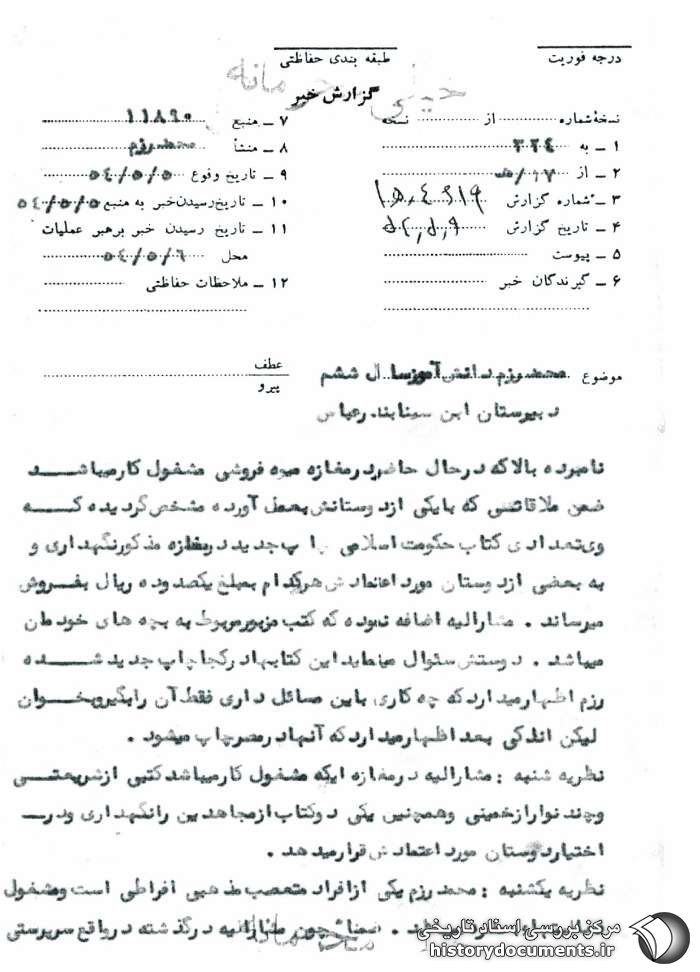 درجه فوریت
طبقه بندی حفاظتی
خیلی محرمانه
گزارش خبر
نسخهٔ شماره ............ از ............ نسخه
۱ ــ به ۳۲٤
۲ ــ از
۳ ــ شماره گزارش
٤ ــ تاریخ گزارش
۵ ــ پیوست
۶ ــ گیرندگان خبر
۷ ــ منبع ۱۱۸۹۰
۸ ــ منشأ محمد رزم
۹ ــ تاریخ وقوع ۵٤/۵/۵
۱۰ ــ تاریخ رسیدن خبر به منبع ۵٤/۵/۵
۱۱ ــ تاریخ رسیدن خبر برهبر عملیات
محل ۵٤/۵/۶
۱۲ ــ ملاحظات حفاظتی
موضوع محمد رزم دانش آموز سال ششم
دبیرستان ابن سینا بندرعباس
عطف
پیرو
نامبرده بالا که در حال حاضر در مغازه میوه فروشی مشغول کار میباشد
ضمن ملاقاتی که با یکی از دوستانش بعمل آورده مشخص گردیده که
وی تعدادی کتاب حکومت اسلامی چاپ جدید در مغازه مذکور نگهداری و
به بعضی از دوستان مورد اعتمادش هرکدام بمبلغ یکصد و ده ریال بفروش
میرساند . مشارالیه اضافه نموده که کتب مزبور مربوط به بچه های خودمان
میباشد . دوستش سئوال مینماید این کتابها در کجا چاپ جدید شده
رزم اظهار میدارد که چه کاری باین مسائل داری فقط آن را بگیر و بخوان
لیکن اندکی بعد اظهار میدارد که آنها در مصر چاپ میشود .
نظریه شنبه : مشارالیه در مغازه ایکه مشغول کار میباشد کتبی از شریعتی
و چند نوار از خمینی و همچنین یکی دو کتاب از مجاهدین را نگهداری و در
اختیار دوستان مورد اعتمادش قرار میدهد .
نظریه یکشنبه : محمد رزم یکی از افراد متعصب مذهبی افراطی است و مشغول
. ضمناً چون مشارالیه در گذشته در واقع سرپرستی
مرکز بررسی اسناد تاریخی
historydocuments.ir